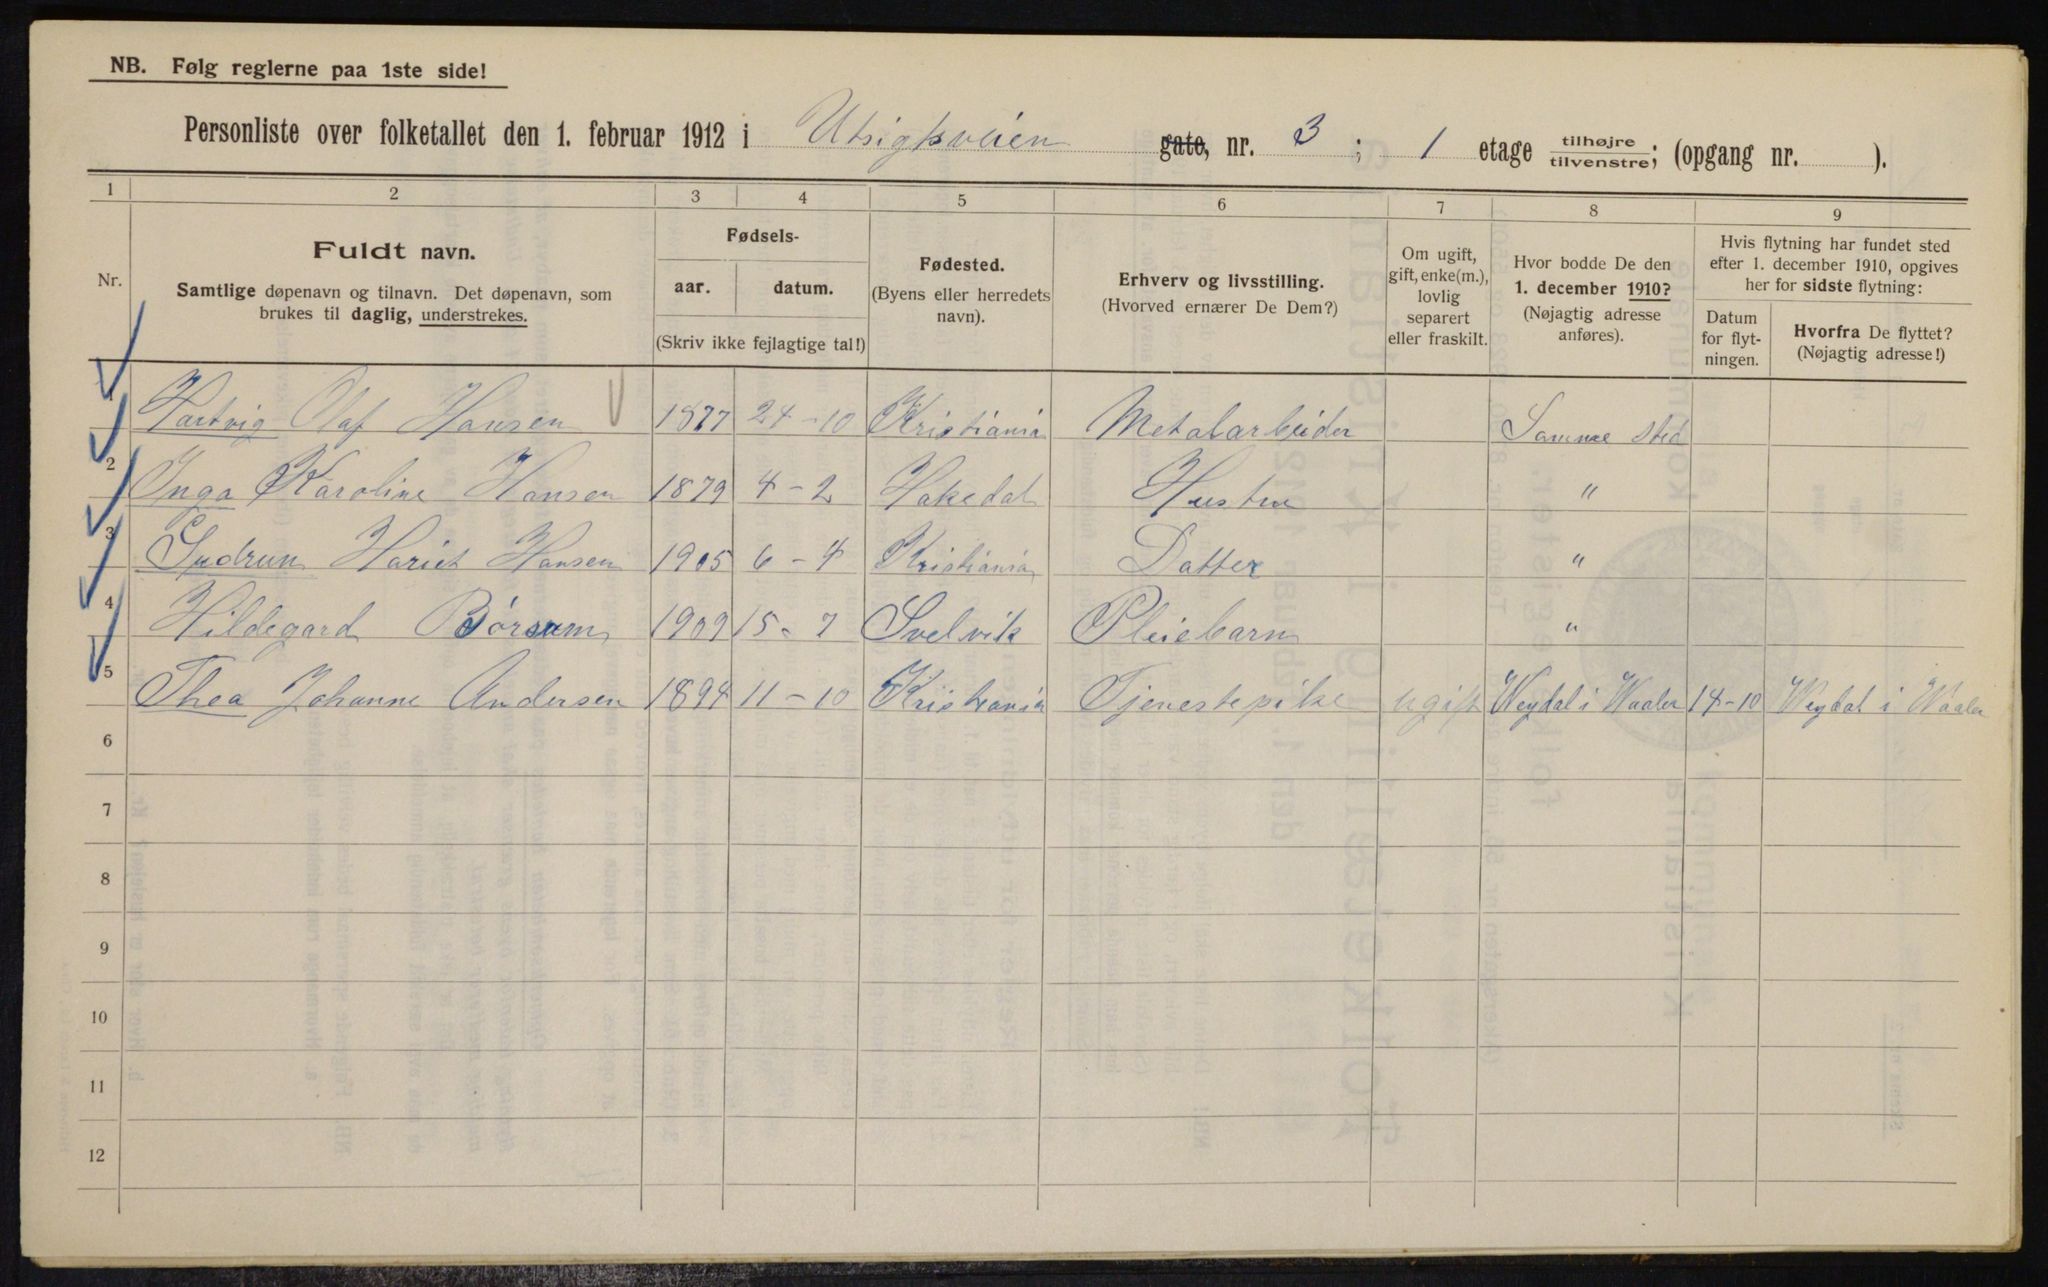 NB. Følg reglerne paa 1ste side!
Personliste over folketallet den 1. februar 1912 i Utsigtsveien gate, nr. 3 ; 1 etage tilhøjre/tilvenstre; (opgang nr. ).
1 2 3 4 5 6 7 8 9
Nr.
Fuldt navn.
Samtlige døpenavn og tilnavn. Det døpenavn, som
brukes til daglig, understrekes.
Fødsels-
aar. datum.
(Skriv ikke fejlagtige tal!)
Fødested.
(Byens eller herredets
navn).
Erhverv og livsstilling.
(Hvorved ernærer De Dem?)
Om ugift,
gift, enke(m.),
lovlig
separert
eller fraskilt.
Hvor bodde De den
1. december 1910?
(Nøjagtig adresse
anføres).
Hvis flytning har fundet sted
efter 1. december 1910, opgives
her for sidste flytning:
Datum
for flyt-
ningen.
Hvorfra De flyttet?
(Nøjagtig adresse!)
1 Hartvig Olaf Hansen 1877 24-10 Kristiania Metalarbeider Samme sted
2 Inga Karoline Hansen 1879 4-2 Hakedal Hustru "
3 Gudrun Hariet Hansen 1905 6-4 Kristiania Datter "
4 Hildegard Børsum 1909 15-7 Svelvik Pleiebarn "
5 Thea Johanne Andersen 1894 11-10 Kristiania Tjenestepike ugift i Waaler 14-10 i Waaler
6
7
8
9
10
11
12